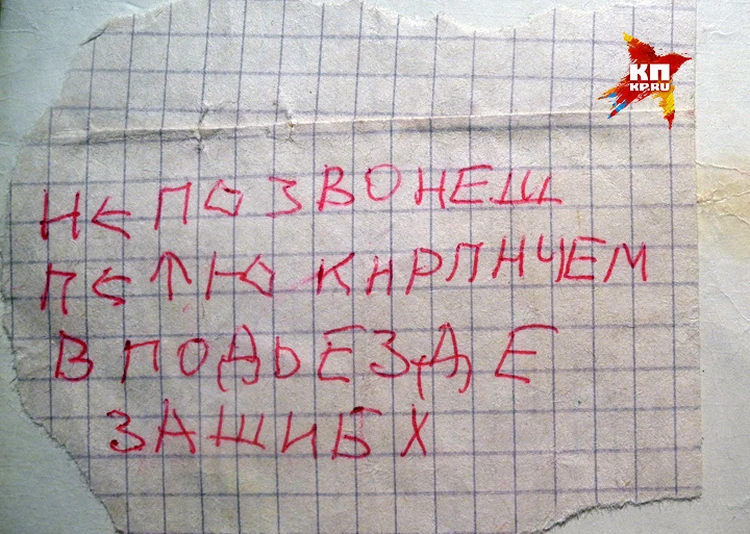 КП
KP.RU
НЕ ПОЗВОНЕШ
ПЕТЮ КИРПИЧЕМ
В ПОДЬЕЗДЕ
ЗАШИБХ